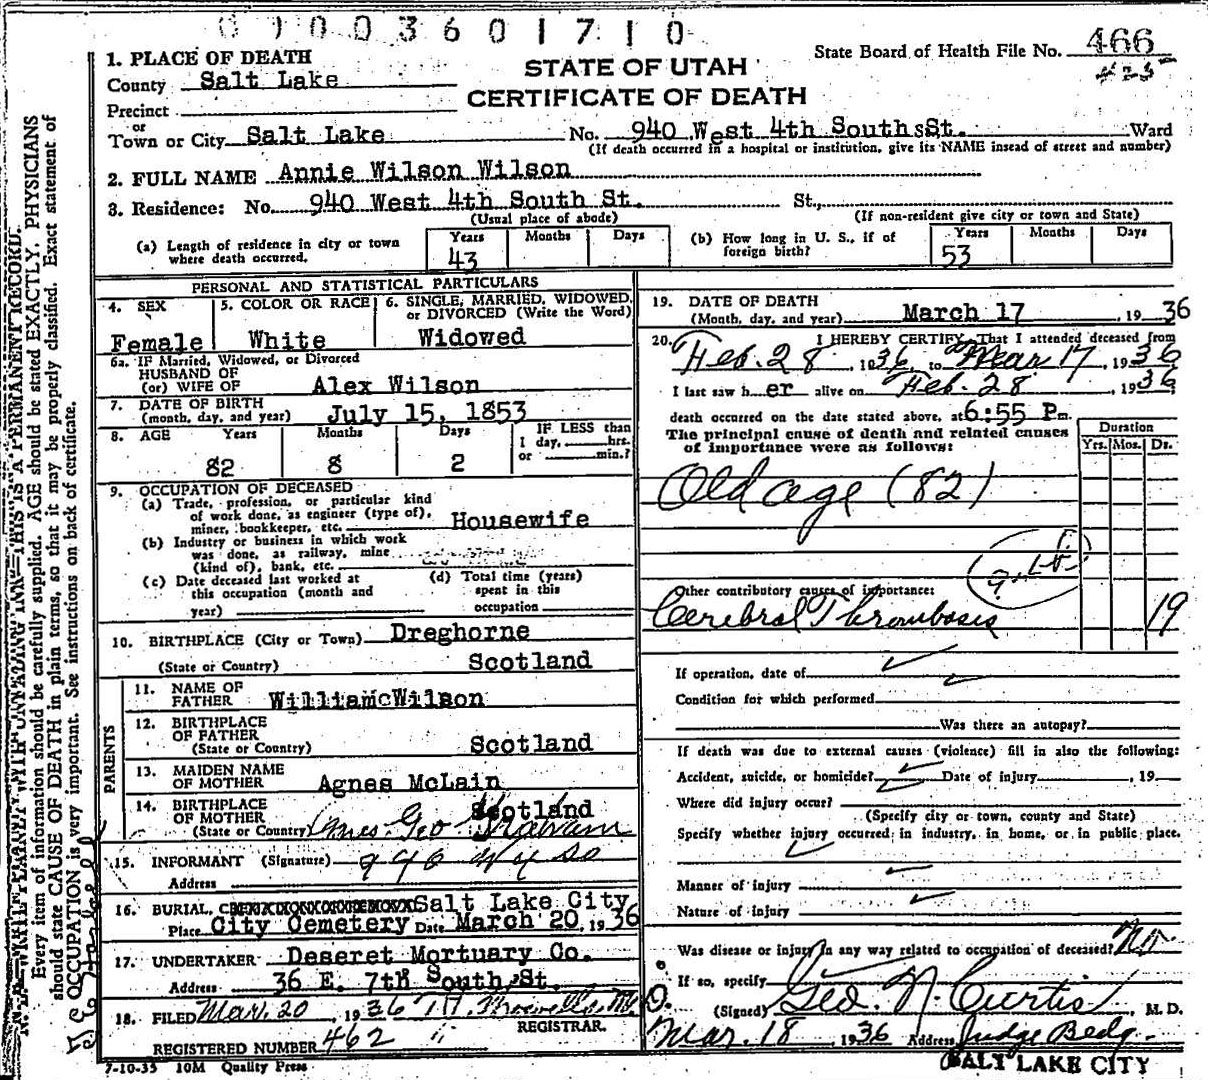 0 0 0 3 6 0 1 7 1 0
State Board of Health File No. 466
435
STATE OF UTAH
CERTIFICATE OF DEATH
1. PLACE OF DEATH
County Salt Lake
Precinct
or
Town or City Salt Lake No. 940 West 4th South St. Ward
(If death occurred in a hospital or institution, give its NAME insead of street and number)
2. FULL NAME Annie Wilson Wilson
3. Residence: No. 940 West 4th South St. St.,
(Usual place of abode) (If non-resident give city or town and State)
(a) Length of residence in city or town where death occurred. Years 43 Months Days
(b) How long in U. S., if of foreign birth? Years 53 Months Days
PERSONAL AND STATISTICAL PARTICULARS
4. SEX Female
5. COLOR OR RACE White
6. SINGLE, MARRIED, WIDOWED, or DIVORCED (Write the Word) Widowed
6a. IF Married, Widowed, or Divorced
HUSBAND OF
(or) WIFE OF Alex Wilson
7. DATE OF BIRTH
(month, day, and year) July 15, 1853
8. AGE Years 82 Months 8 Days 2 IF LESS than 1 day, hrs. or min.?
9. OCCUPATION OF DECEASED
(a) Trade, profession, or particular kind
of work done, as engineer (type of),
miner, bookkeeper, etc. Housewife
(b) Industry or business in which work
was done, as railway, mine
(kind of), bank, etc.
(c) Date deceased last worked at this occupation (month and year)
(d) Total time (years) spent in this occupation
10. BIRTHPLACE (City or Town) Dreghorne
(State or Country) Scotland
PARENTS
11. NAME OF FATHER William Wilson
12. BIRTHPLACE OF FATHER
(State or Country) Scotland
13. MAIDEN NAME OF MOTHER Agnes McLain
14. BIRTHPLACE OF MOTHER Scotland
(State or Country) Mrs. Geo Graham
15. INFORMANT (Signature) 940 W 4 So
Address
16. BURIAL, Salt Lake City
Place City Cemetery Date March 20, 1936
17. UNDERTAKER Deseret Mortuary Co.
Address 36 E. 7th South St.
18. FILED Mar. 20 1936
REGISTRAR.
REGISTERED NUMBER 462
7-10-35 10M Quality Press
19. DATE OF DEATH
(Month, day, and year) March 17 1936
20. I HEREBY CERTIFY, That I attended deceased from
Feb. 28, 1936 to Mar 17, 1936
I last saw her alive on Feb. 28 1936
death occurred on the date stated above, at 6:55 Pm.
The principal cause of death and related causes
of importance were as follows:
Duration
Yrs. Mos. Ds.
Old age (82)
Other contributory causes of importance:
Cerebral Thrombosis 19
If operation, date of
Condition for which performed
Was there an autopsy?
If death was due to external causes (violence) fill in also the following:
Accident, suicide, or homicide? Date of injury , 19
Where did injury occur?
(Specify city or town, county and State)
Specify whether injury occurred in industry, in home, or in public place.
Manner of injury
Nature of injury
Was disease or injury in any way related to occupation of deceased? No
If so, specify
(Signed) Geo. N. Curtis M. D.
Mar. 18 1936 Address Judge Bldg.
SALT LAKE CITY
N. B.—WRITE PLAINLY, WITH UNFADING INK—THIS IS A PERMANENT RECORD.
Every item of information should be carefully supplied. AGE should be stated EXACTLY. PHYSICIANS
should state CAUSE OF DEATH in plain terms, so that it may be properly classified. Exact statement of
OCCUPATION is very important. See instructions on back of certificate.